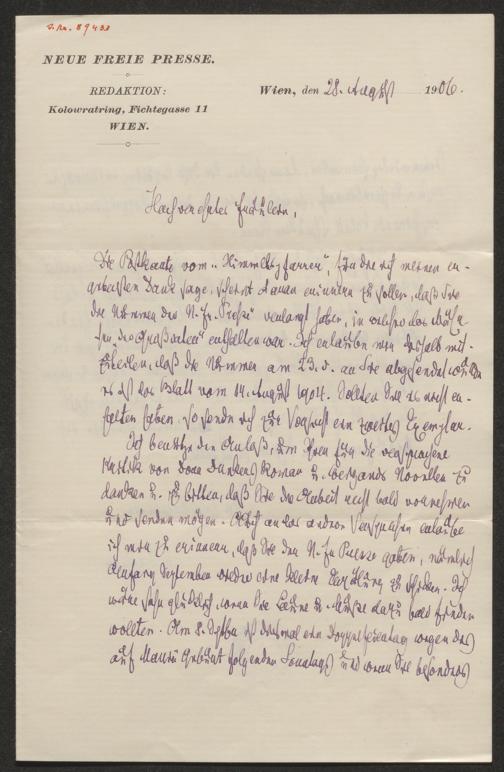 J. No. 89438
NEUE FREIE PRESSE.
REDAKTION:
Kolowratring, Fichtegasse 11
WIEN.
Wien, den 28. August 1906.
Hochverehrtes Fräulein,
Die Postkarte vom „Himmelspfarrer“, für die ich meinen er-
gebensten Dank sage, scheint daran erinnern zu sollen, daß Sie
die Nummer der N. Fr. Presse verlangt haben, in welcher das
enthalten war. Ich erlaube mir deshalb mit-
zuteilen, daß die Nummer am 23. d. an Sie abgesendet wurde
es ist das Blatt vom 14. August 1904. Sollten Sie es nicht er-
halten haben, so sende ich zur Vorsicht ein zweites Exemplar.
Ich benütze den Anlaß, um Ihnen für die versprochene
Kritik von Dora Dunckers Roman u. Novellen zu
danken u. zu bitten, daß Sie die Arbeit recht bald vornehmen
und senden mögen. Auch an das andere Versprechen erlaube
ich mir zu erinnern, daß Sie der N. Fr. Presse gaben, nämlich
Anfang September wieder eine kleine Erzählung zu schicken. Ich
wäre sehr glücklich, wenn Sie Laune u. Muße dazu bald finden
wollten. Am 8. Septber ist diesmal ein Doppelfeiertag wegen des
auf Mariä Geburt folgenden Sonntags und wenn Sie besonders